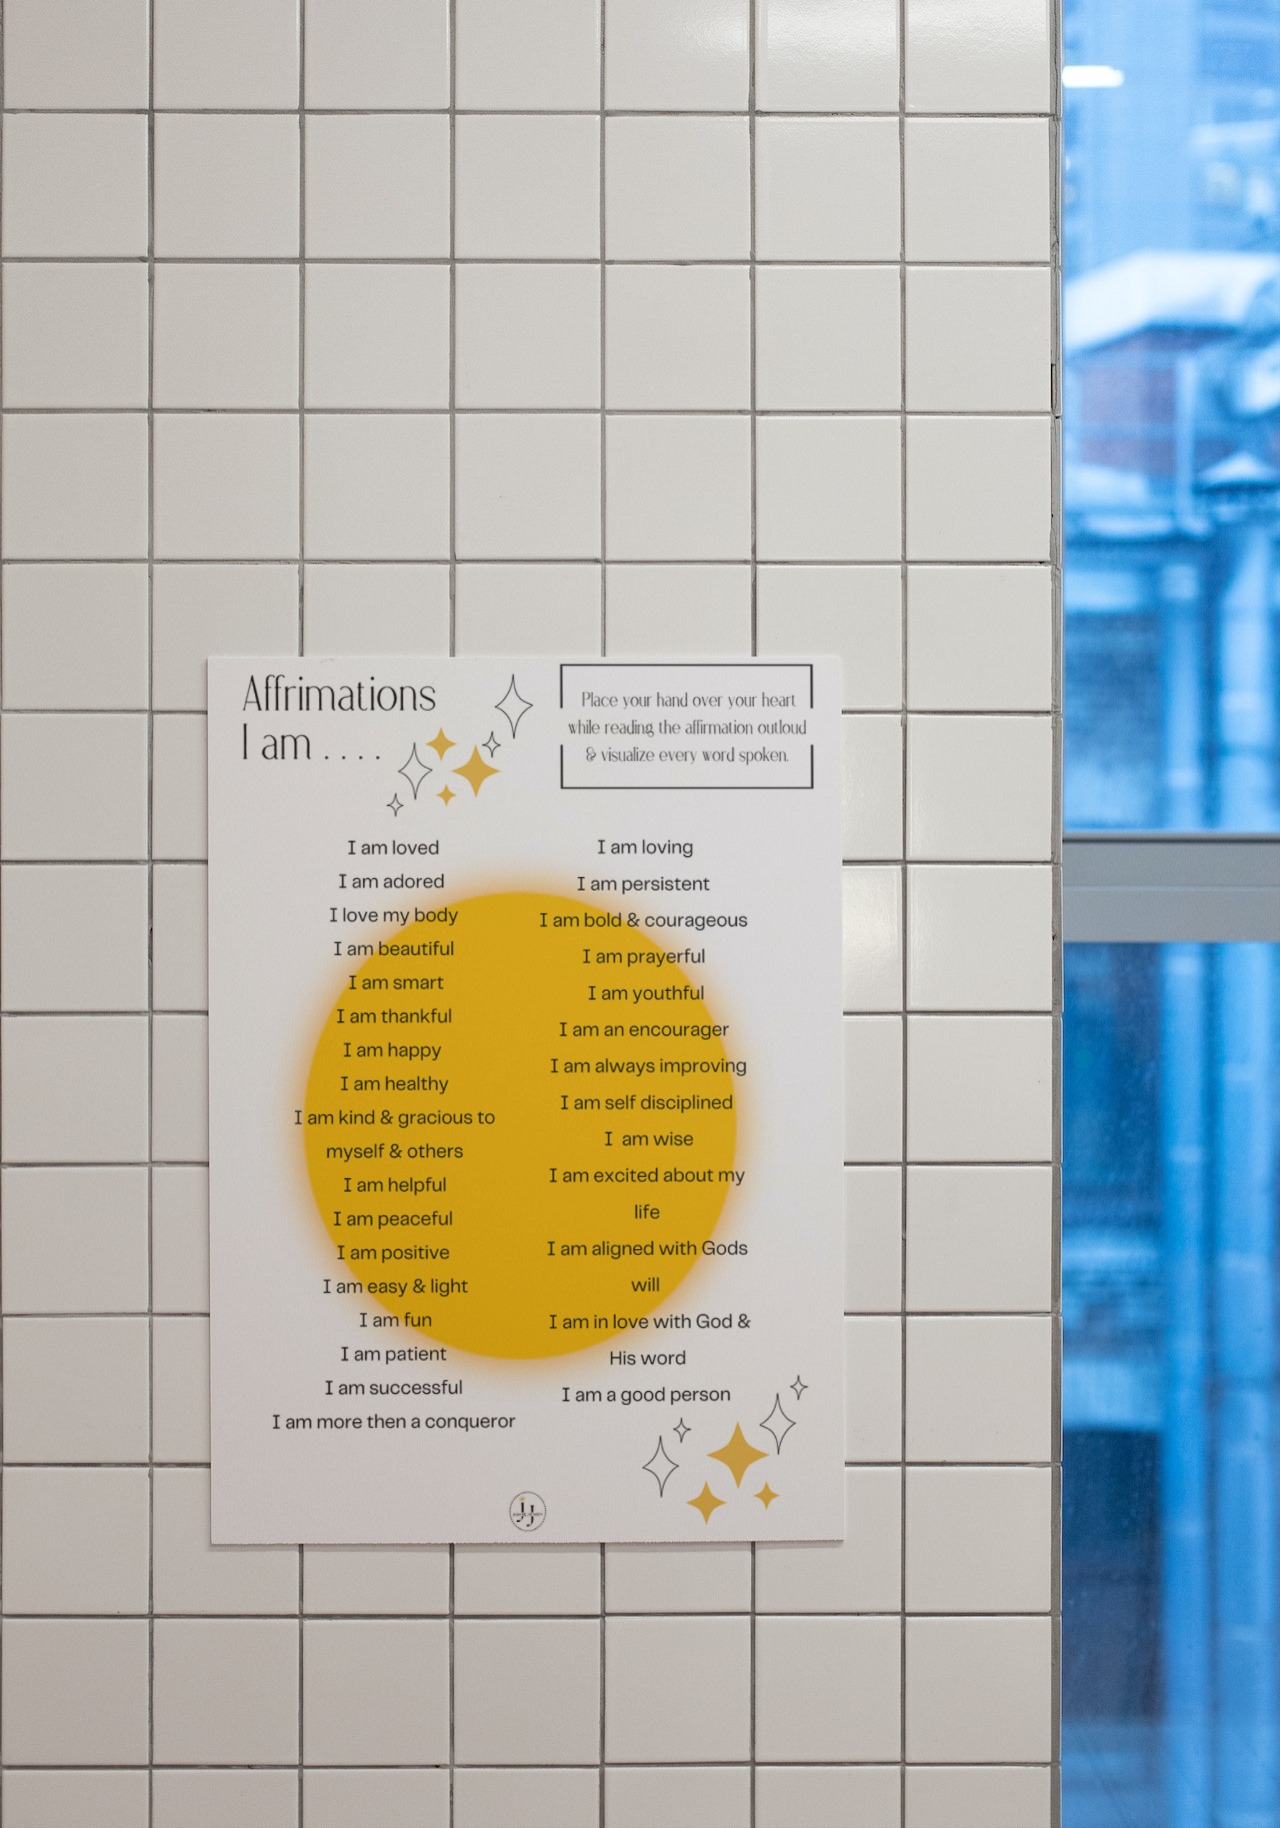 Affrimations
I am . . . .
Place your hand over your heart
while reading the affirmation outloud
& visualize every word spoken.
I am loved
I am adored
I love my body
I am beautiful
I am smart
I am thankful
I am happy
I am healthy
I am kind & gracious to
myself & others
I am helpful
I am peaceful
I am positive
I am easy & light
I am fun
I am patient
I am successful
I am more then a conqueror
I am loving
I am persistent
I am bold & courageous
I am prayerful
I am youthful
I am an encourager
I am always improving
I am self disciplined
I am wise
I am excited about my
life
I am aligned with Gods
will
I am in love with God &
His word
I am a good person